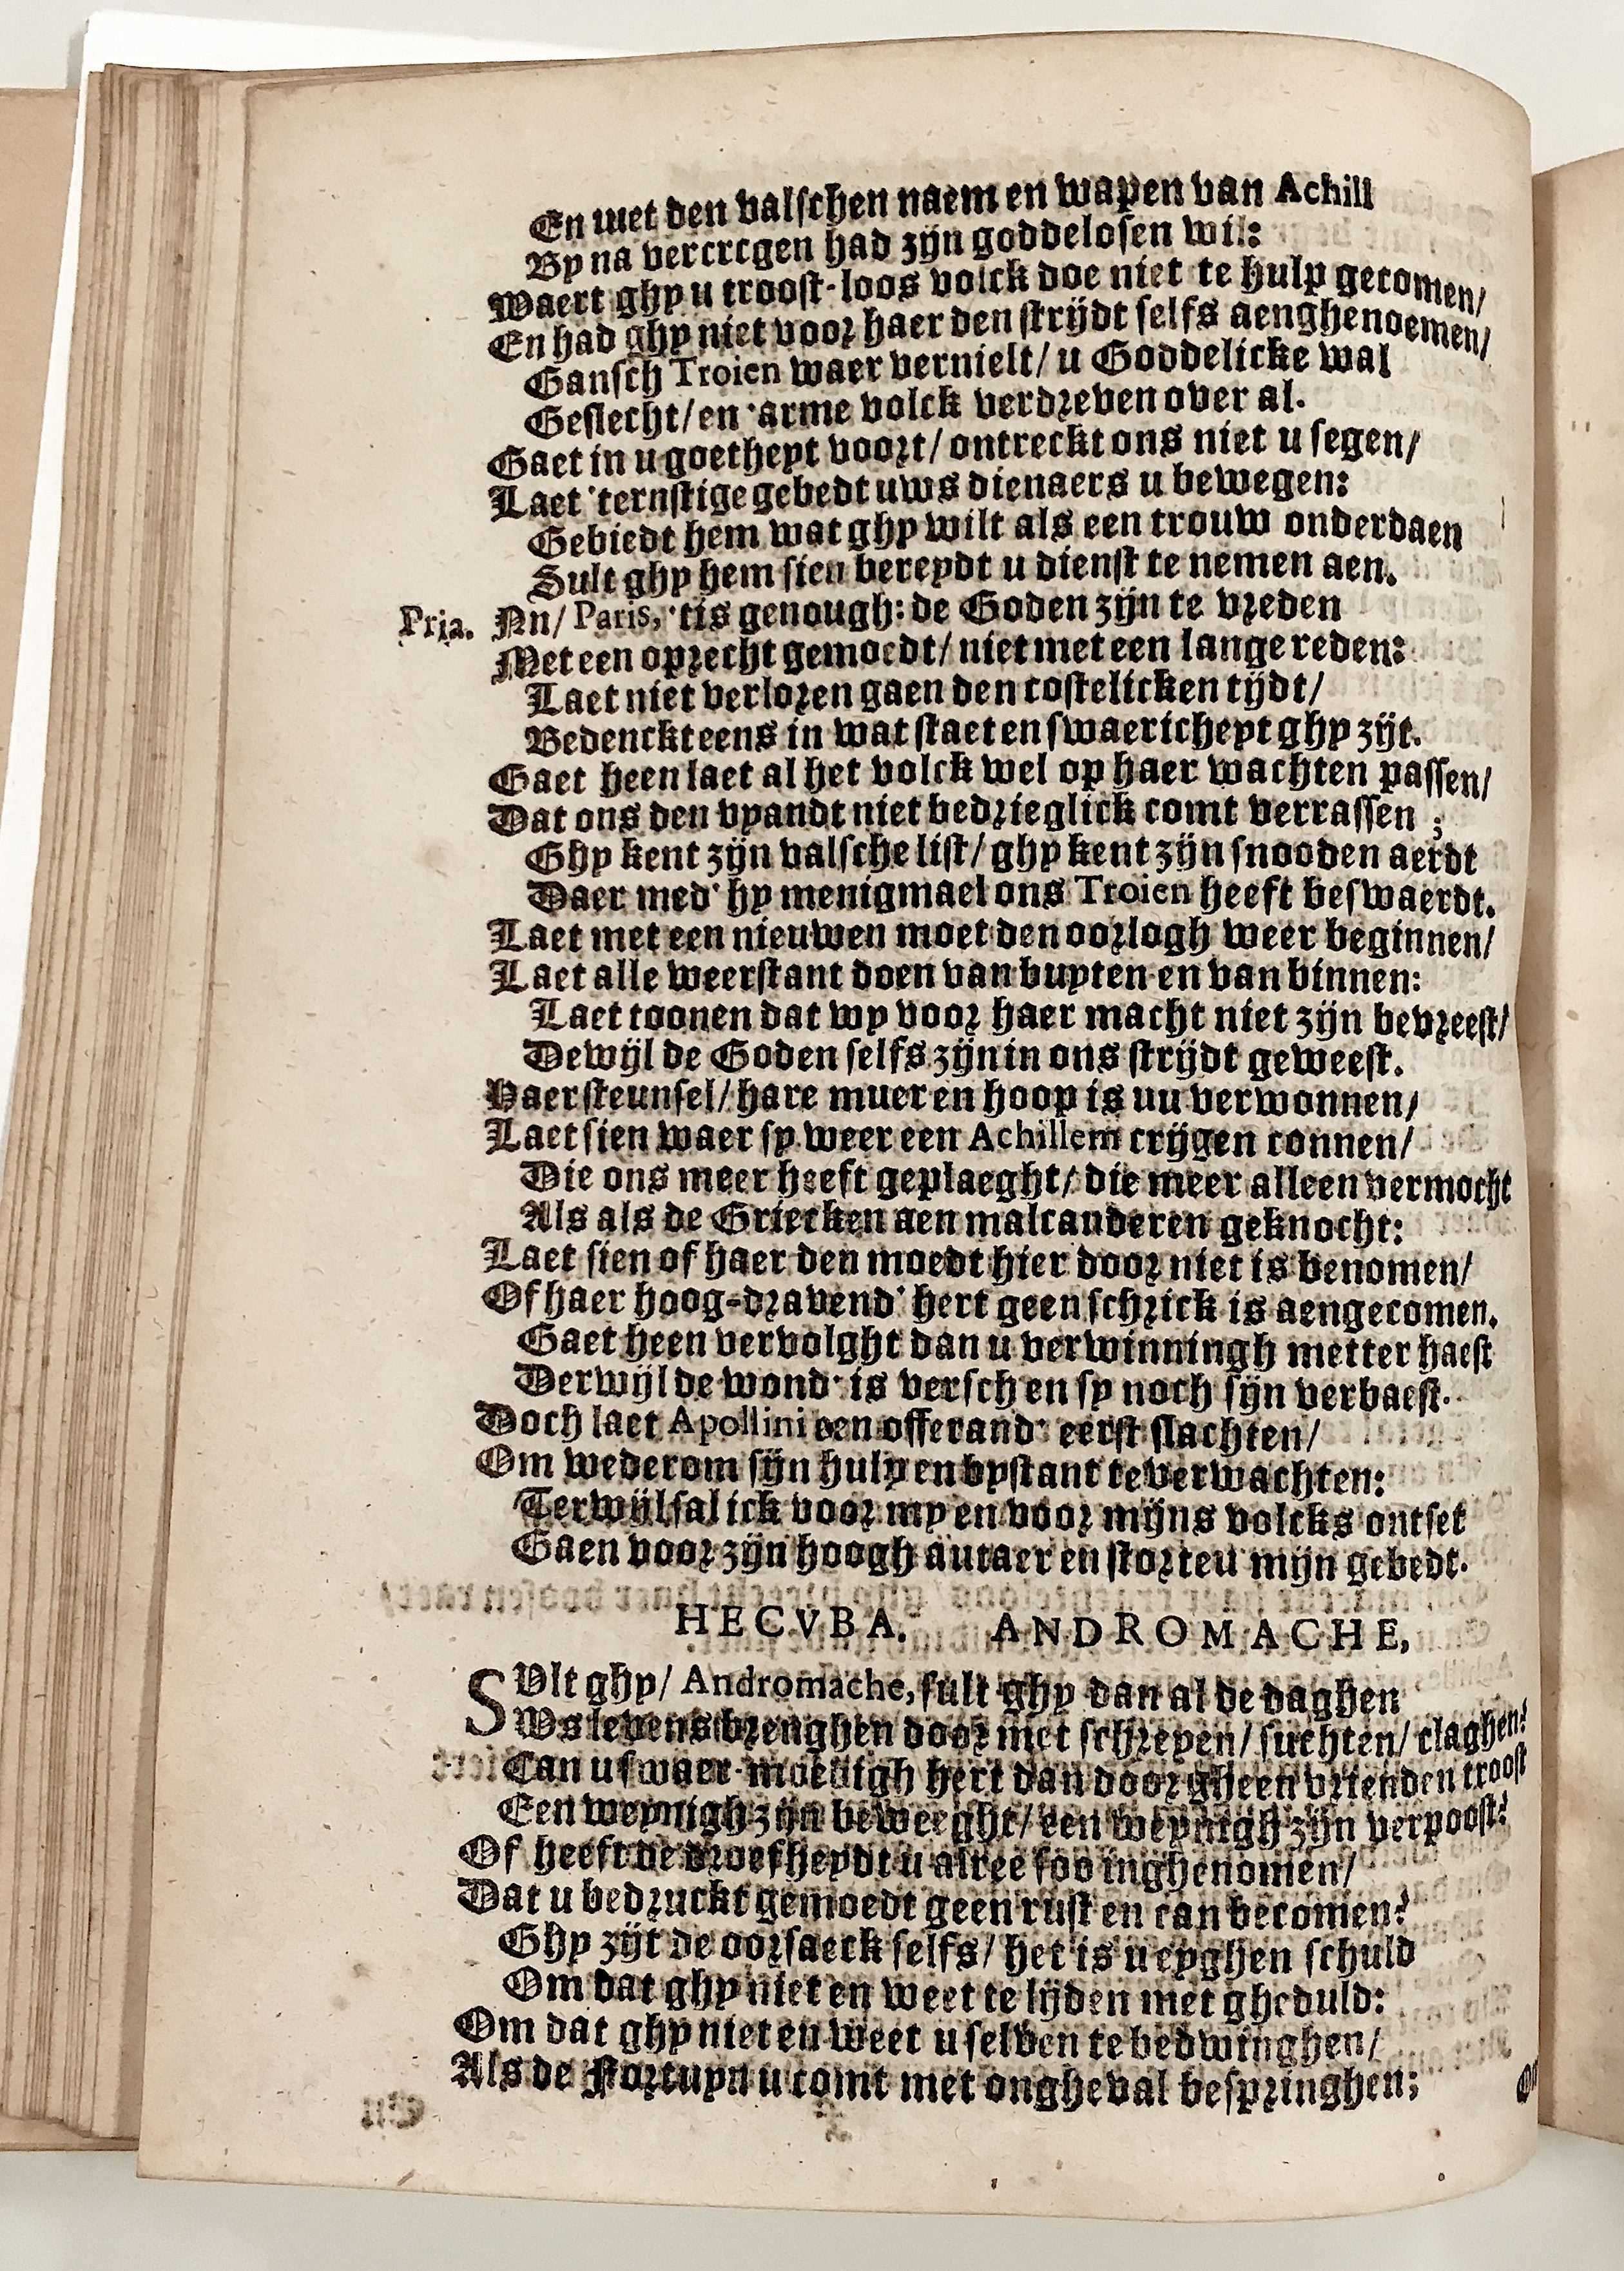 En met den valschen naem en wapen van Achill
By na vercregen had zijn goddelosen wil:
Waert ghy u troost-loos volck doe niet te hulp gecomen/
En had ghy niet voor haer den strijdt selfs aenghenoemen/
Gansch Troien waer vernielt/ u Goddelicke wal
Geslecht/ en 'arme volck verdreven over al.
Gaet in u goetheyt voort/ ontreckt ons niet u segen/
Laet 'ternstige gebedt uws dienaers u bewegen:
Gebiedt hem wat ghy wilt als een trouw onderdaen
Sult ghy hem sien bereydt u dienst te nemen aen.
Pria. Nn/ Paris, 'tis genough: de Goden zijn te vreden
Met een oprecht gemoedt/ niet met een lange reden:
Laet niet verloren gaen den costelicken tijdt/
Bedenckt eens in wat staet en swaericheyt ghy zijt.
Gaet heen laet al het volck wel op haer wachten passen/
Dat ons den vyandt niet bedrieglick comt verrassen ;
Ghy kent zijn valsche list/ ghy kent zijn snooden aerdt
Daer med' hy menigmael ons Troien heeft beswaerdt.
Laet met een nieuwen moet den oorlogh weer beginnen/
Laet alle weerstant doen van buyten en van binnen:
Laet toonen dat wy voor haer macht niet zijn bevreest/
Dewijl de Goden selfs zijn in ons strijdt geweest.
Haer steunsel/ hare muer en hoop is uu verwonnen/
Laet sien waer sy weer een Achillem crijgen connen/
Die ons meer heeft geplaeght/ die meer alleen vermocht
Als als de Griecken aen malcanderen geknocht:
Laet sien of haer den moedt hier door niet is benomen/
Of haer hoog-dravend' hert geen schrick is aengecomen.
Gaet heen vervolght dan u verwinningh metter haest
Derwijl de wond' is versch en sy noch sijn verbaest.
Doch laet Apollini een offerand' eerst slachten/
Om wederom sijn hulp en bystant te verwachten:
Terwijl sal ick voor my en voor mijns volcks ontset
Gaen voor zijn hoogh autaer en storteu mijn gebedt.
HECVBA. ANDROMACHE,
SVlt ghy/ Andromache, sult ghy dan al de daghen
Ws levens brenghen door met schreyen/ suchten/ claghen?
Can u swaer-moedigh hert dan door gheen vrienden troost
Een weynigh zijn beweeght/ een weynigh zijn verpoost?
Of heeft de droefheydt u alree soo inghenomen/
Dat u bedruckt gemoedt geen rust en can becomen?
Ghy zijt de oorsaeck selfs/ het is u eyghen schuld
Om dat ghy niet en weet te lijden met gheduld:
Om dat ghy niet en weet u selven te bedwinghen/
Als de Fortuyn u comt met ongheval bespringhen;